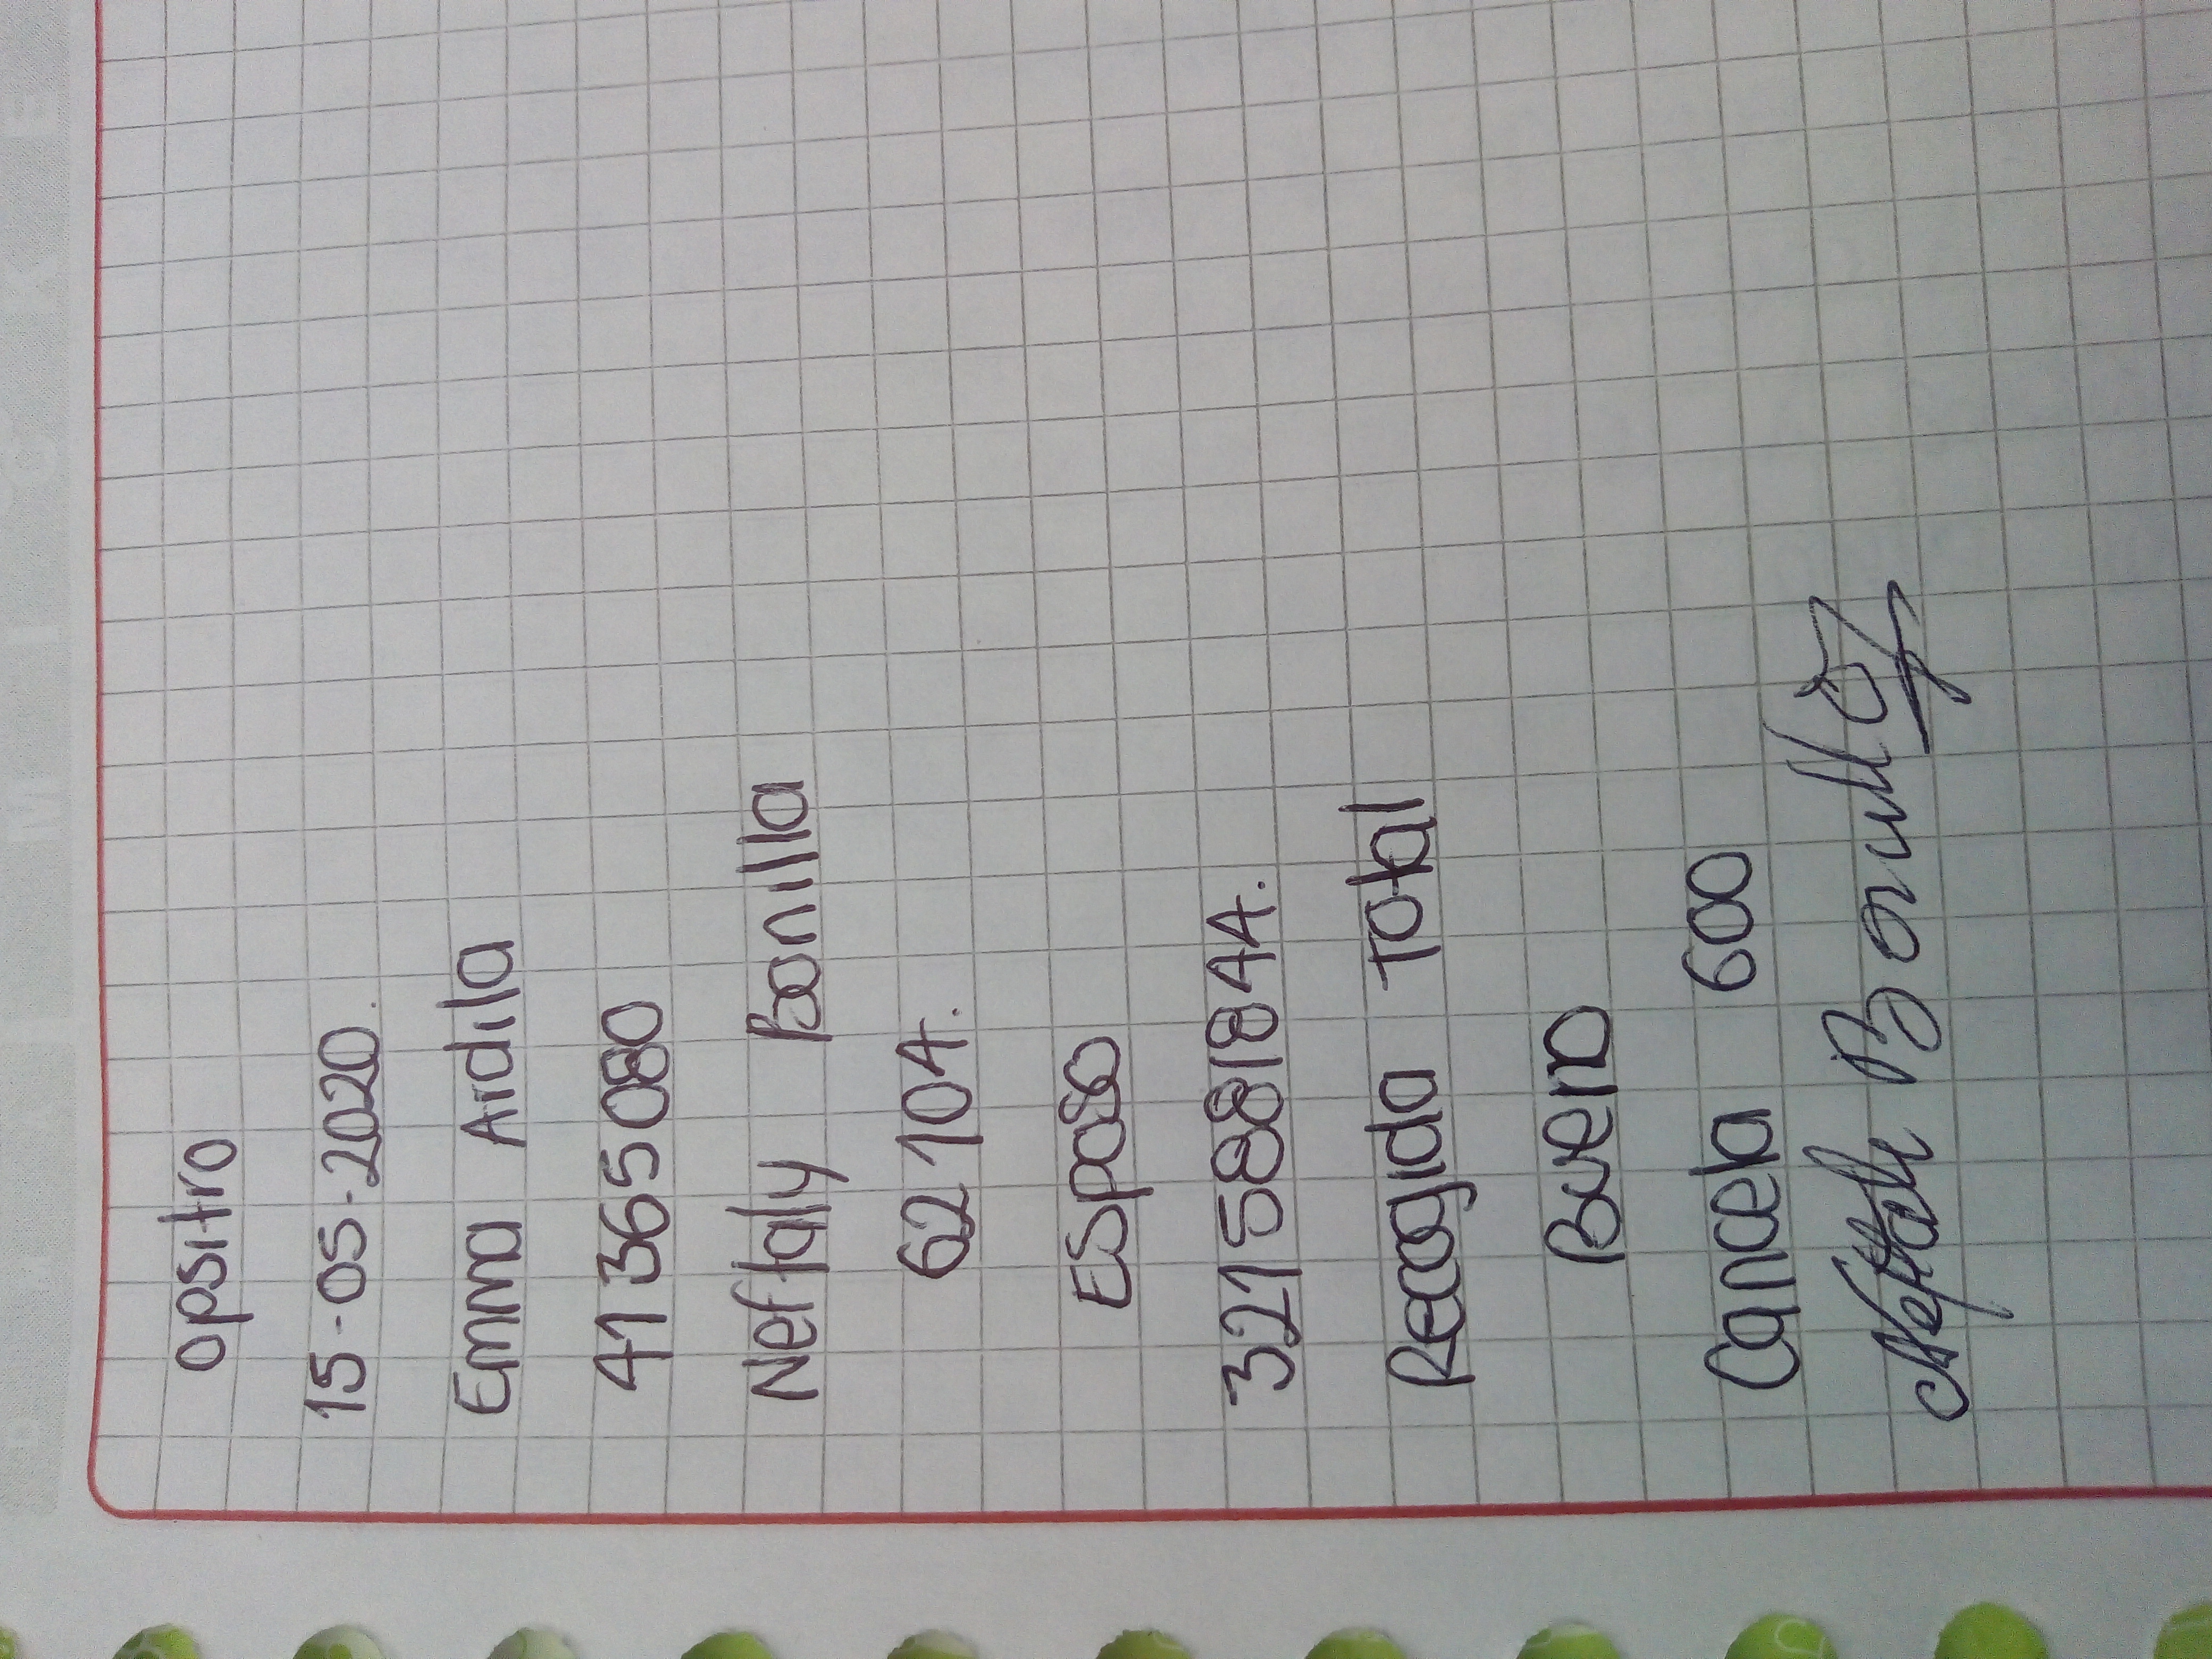 opsitro
15-05-2020.
Emma Ardila
41365080
Neftaly Bonilla
62104.
ESposo
3215881844.
Recogida Total
Bueno
Cancela 600
Neftali Bonilla